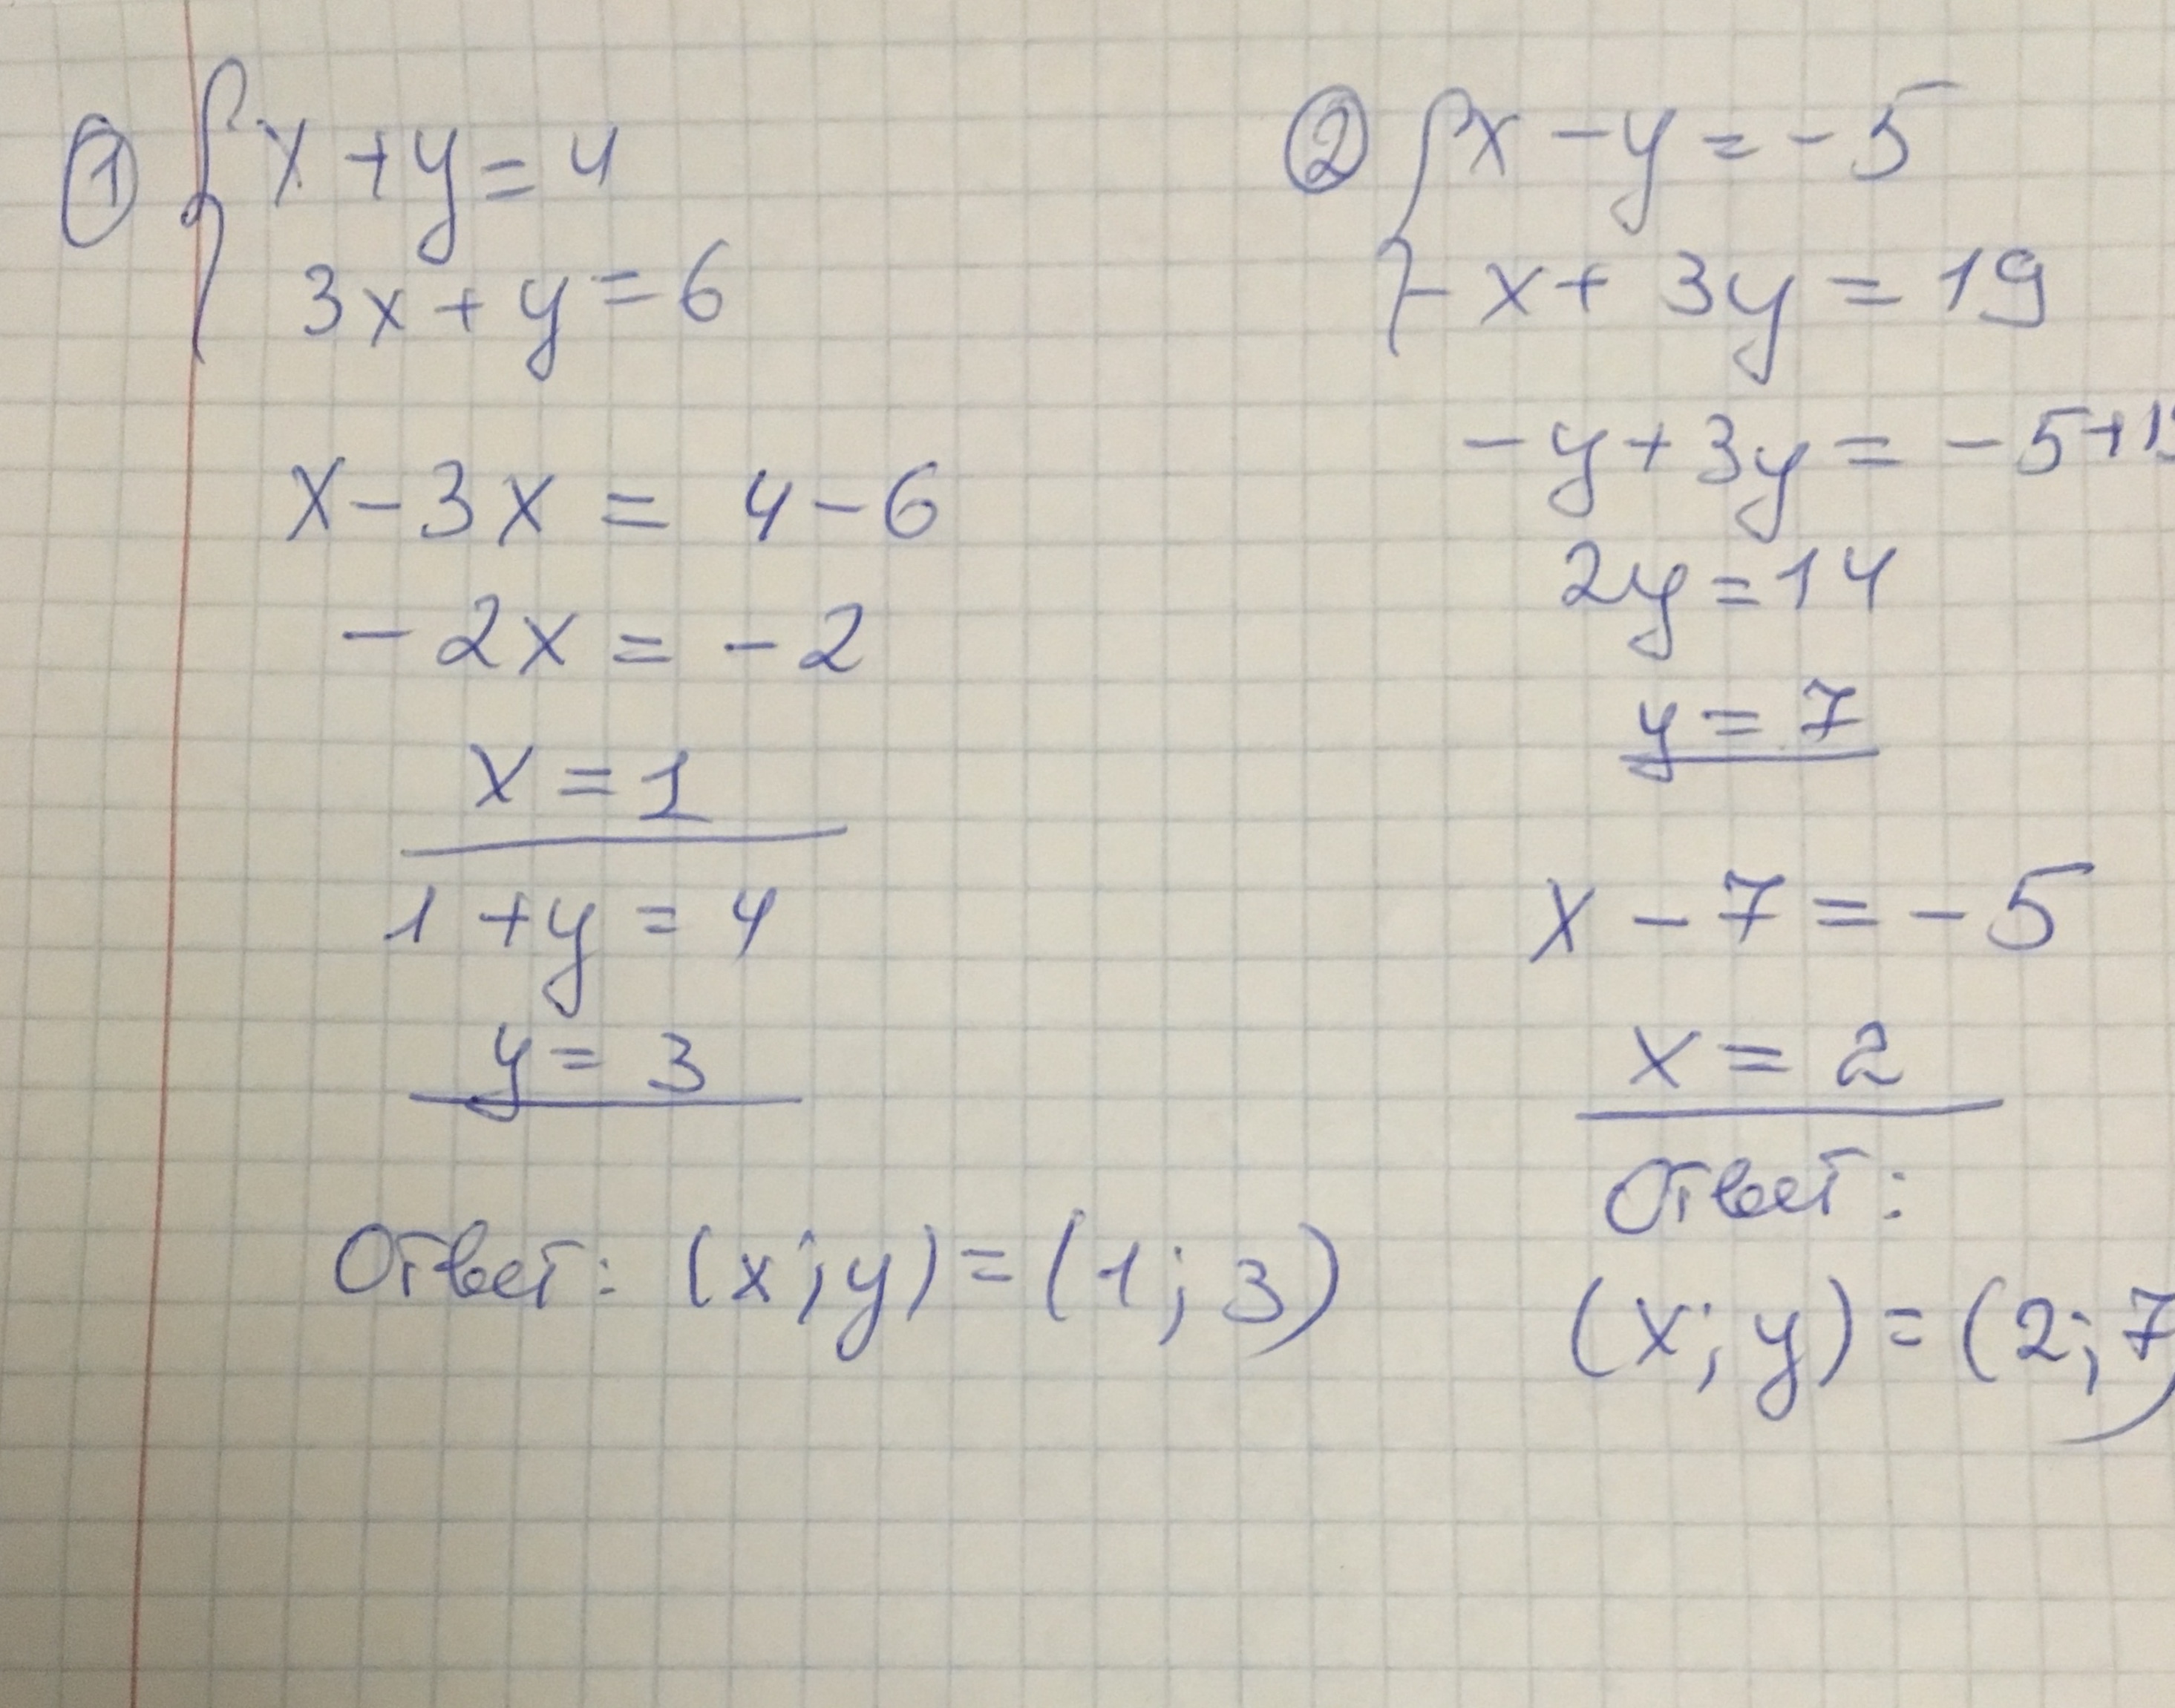 ① { x + y = 4
3x + y = 6
x - 3x = 4 - 6
- 2x = - 2
x = 1
1 + y = 4
y = 3
Ответ: (x; y) = (1; 3)
② { x - y = - 5
- x + 3y = 19
- y + 3y = - 5 + 19
2y = 14
y = 7
x - 7 = - 5
x = 2
Ответ:
(x; y) = (2; 7)